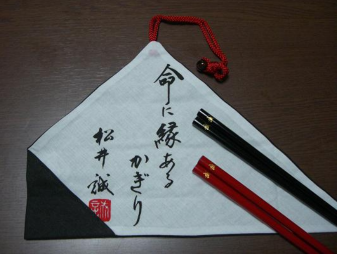 命に縁ある
かぎり
松井誠